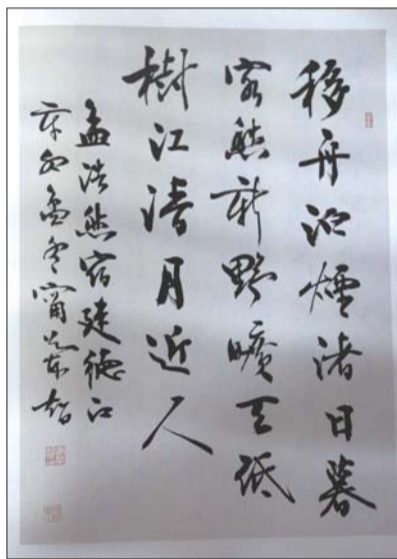 移舟泊煙渚日暮
客愁新野曠天低
樹江清月近人
孟浩然宿建德江
辛卯孟冬